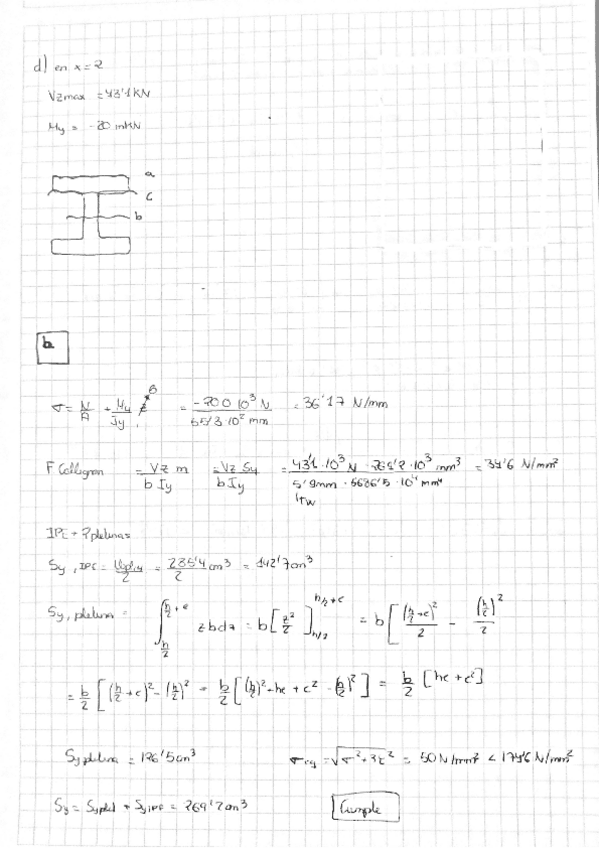 d) en x=2
Vzmax = 43'1 kN
My = -20 mkN
a
c
b
b
σ = N/A + My/Iy z = -200 10³ N / 55'3·10² mm = 36'17 N/mm
F Collignon = Vz m / b Iy = Vz Sy / b Iy = 43'1·10³ N · 269'2·10³ mm³ / 5'9mm · 5686'5·10⁴ mm⁴ = 34'6 N/mm²
tw
IPE + 2 pletinas
Sy, IPE = Wpl,y / 2 = 285'4 cm³ / 2 = 142'7 cm³
Sy, pletina = ∫ h/2 h/2+e z b dz = b [z²/2] h/2 h/2+e = b [ (h/2+e)²/2 - (h/2)²/2
= b/2 [ (h/2+e)² - (h/2)² = b/2 [ (h/2)² + he + e² - (h/2)² ] = b/2 [he + e²]
Sy pletina = 126'5 cm³ σeq = √σ²+3τ² = 50 N/mm² < 174'6 N/mm²
Sy = Sy plet + Sy IPE = 269'2 cm³ Cumple